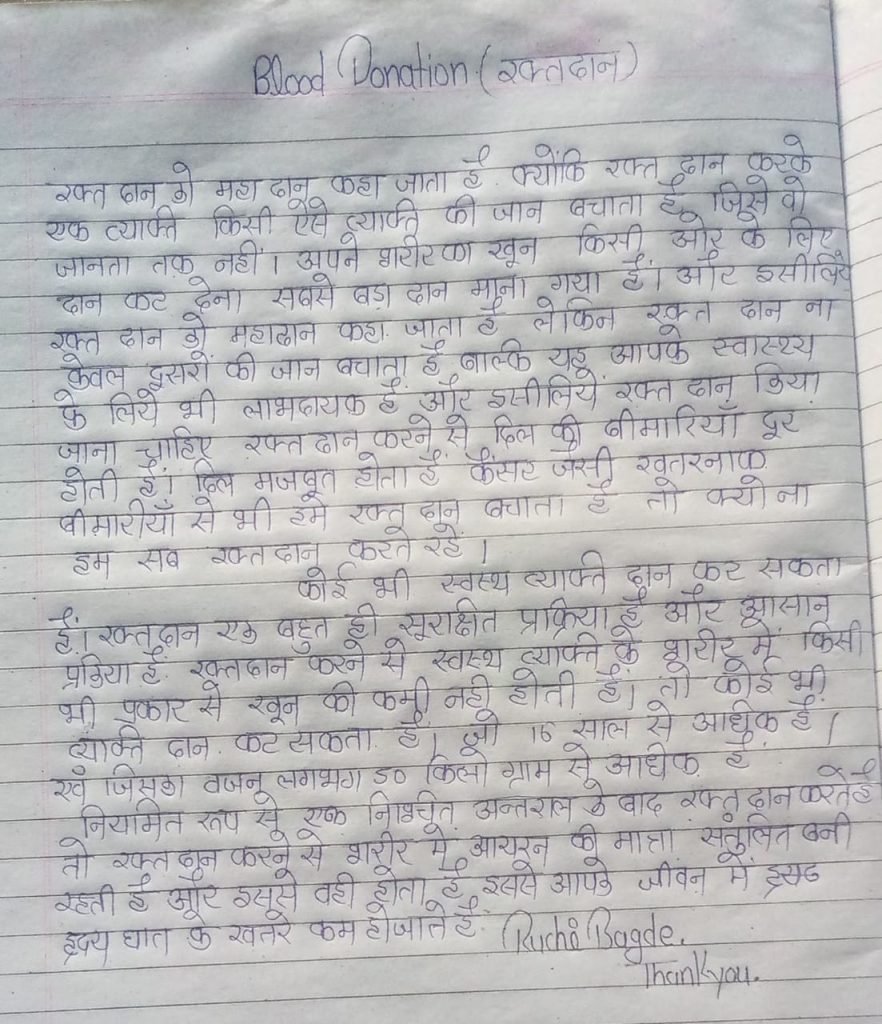 Blood Donation (रक्तदान)
रक्त दान को महा दान कहा जाता है. क्योंकि रक्त दान करके
एक व्यक्ति किसी ऐसे व्यक्ति की जान बचाता है, जिसे वो
जानता तक नहीं। अपने शरीर का खून किसी ओर के लिए
दान कर देना सबसे बड़ा दान माना गया है। और इसीलिये
रक्त दान को महादान कहा. जाता है लेकिन रक्त दान ना
केवल दुसरों की जान बचाता है बल्कि यह आपके स्वास्थ्य
के लिये भी लाभदायक है और इसीलिये रक्त दान किया
जाना चाहिए रक्त दान करने से दिल की बीमारियाँ दूर
होती है। दिल मजबूत होता है कैंसर जैसी खतरनाक
बीमारीयाँ से भी हमे रक्त दान बचाता है तो क्यो ना
हम सब रक्तदान करते रहें।
कोई भी स्वस्थ व्यक्ति दान कर सकता
है। रक्तदान एक बहुत ही सुरक्षित प्राक्रिया है और आसान
प्रक्रिया है. रक्तदान करने से स्वस्थ व्यक्ति के शरीर में किसी
भी प्रकार से खून की कमी नही होती है। तो कोई भी
व्यक्ति दान कर सकता है। जो 16 साल से अधिक है।
एवं जिसका वजन लगभग 50 किलो ग्राम से अधिक है.
नियमित रूप से एक निश्चीत अन्तराल के बाद रक्त दान करते है
तो रक्त दान करने से शरीर में आयरन की मात्रा संतुलित बनी
रहती है और इससे वही होता है इससे आपके जीवन में
हृदय घात के खतरे कम हो जाते है. Ruchi Bagde.
Thankyou.